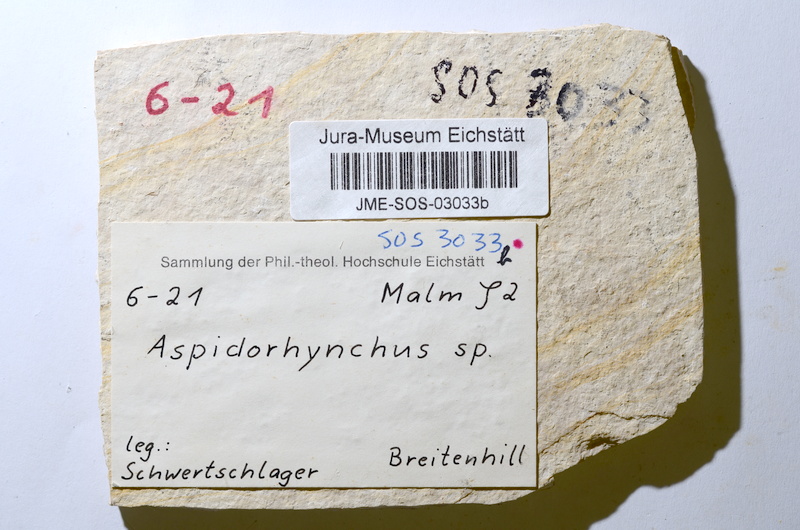 6-21
SOS 3033
Jura-Museum Eichstätt
JME-SOS-03033b
SOS 3033 b
Sammlung der Phil.-theol. Hochschule Eichstätt
6-21 Malm ζ2
Aspidorhynchus sp.
leg.:
Schwertschlager Breitenhill